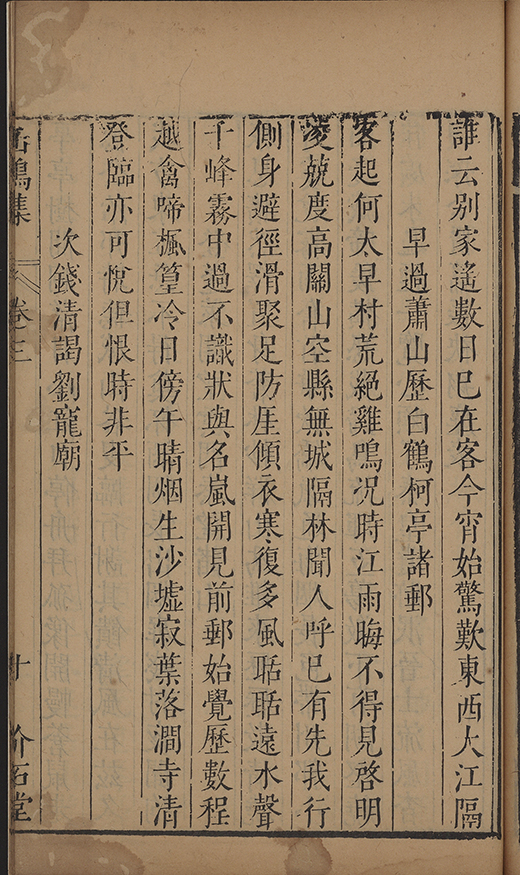 誰云别家遙數日已在客今宵始驚歎東西大江隔
早過蕭山歷白鶴柯亭諸郵
客起何太早村荒絕雞鳴況時江雨晦不得見啓明
凌兢度高關山空縣無城隔林聞人呼已有先我行
側身避徑滑聚足防厓傾衣寒復多風聒聒遠水聲
千峰霧中過不識狀與名嵐開見前郵始覺歷數程
越禽啼楓篁冷日傍午晴烟生沙墟寂葉落澗寺清
登臨亦可悅但恨時非平
次錢清謁劉寵廟
集
卷三
十
介石堂